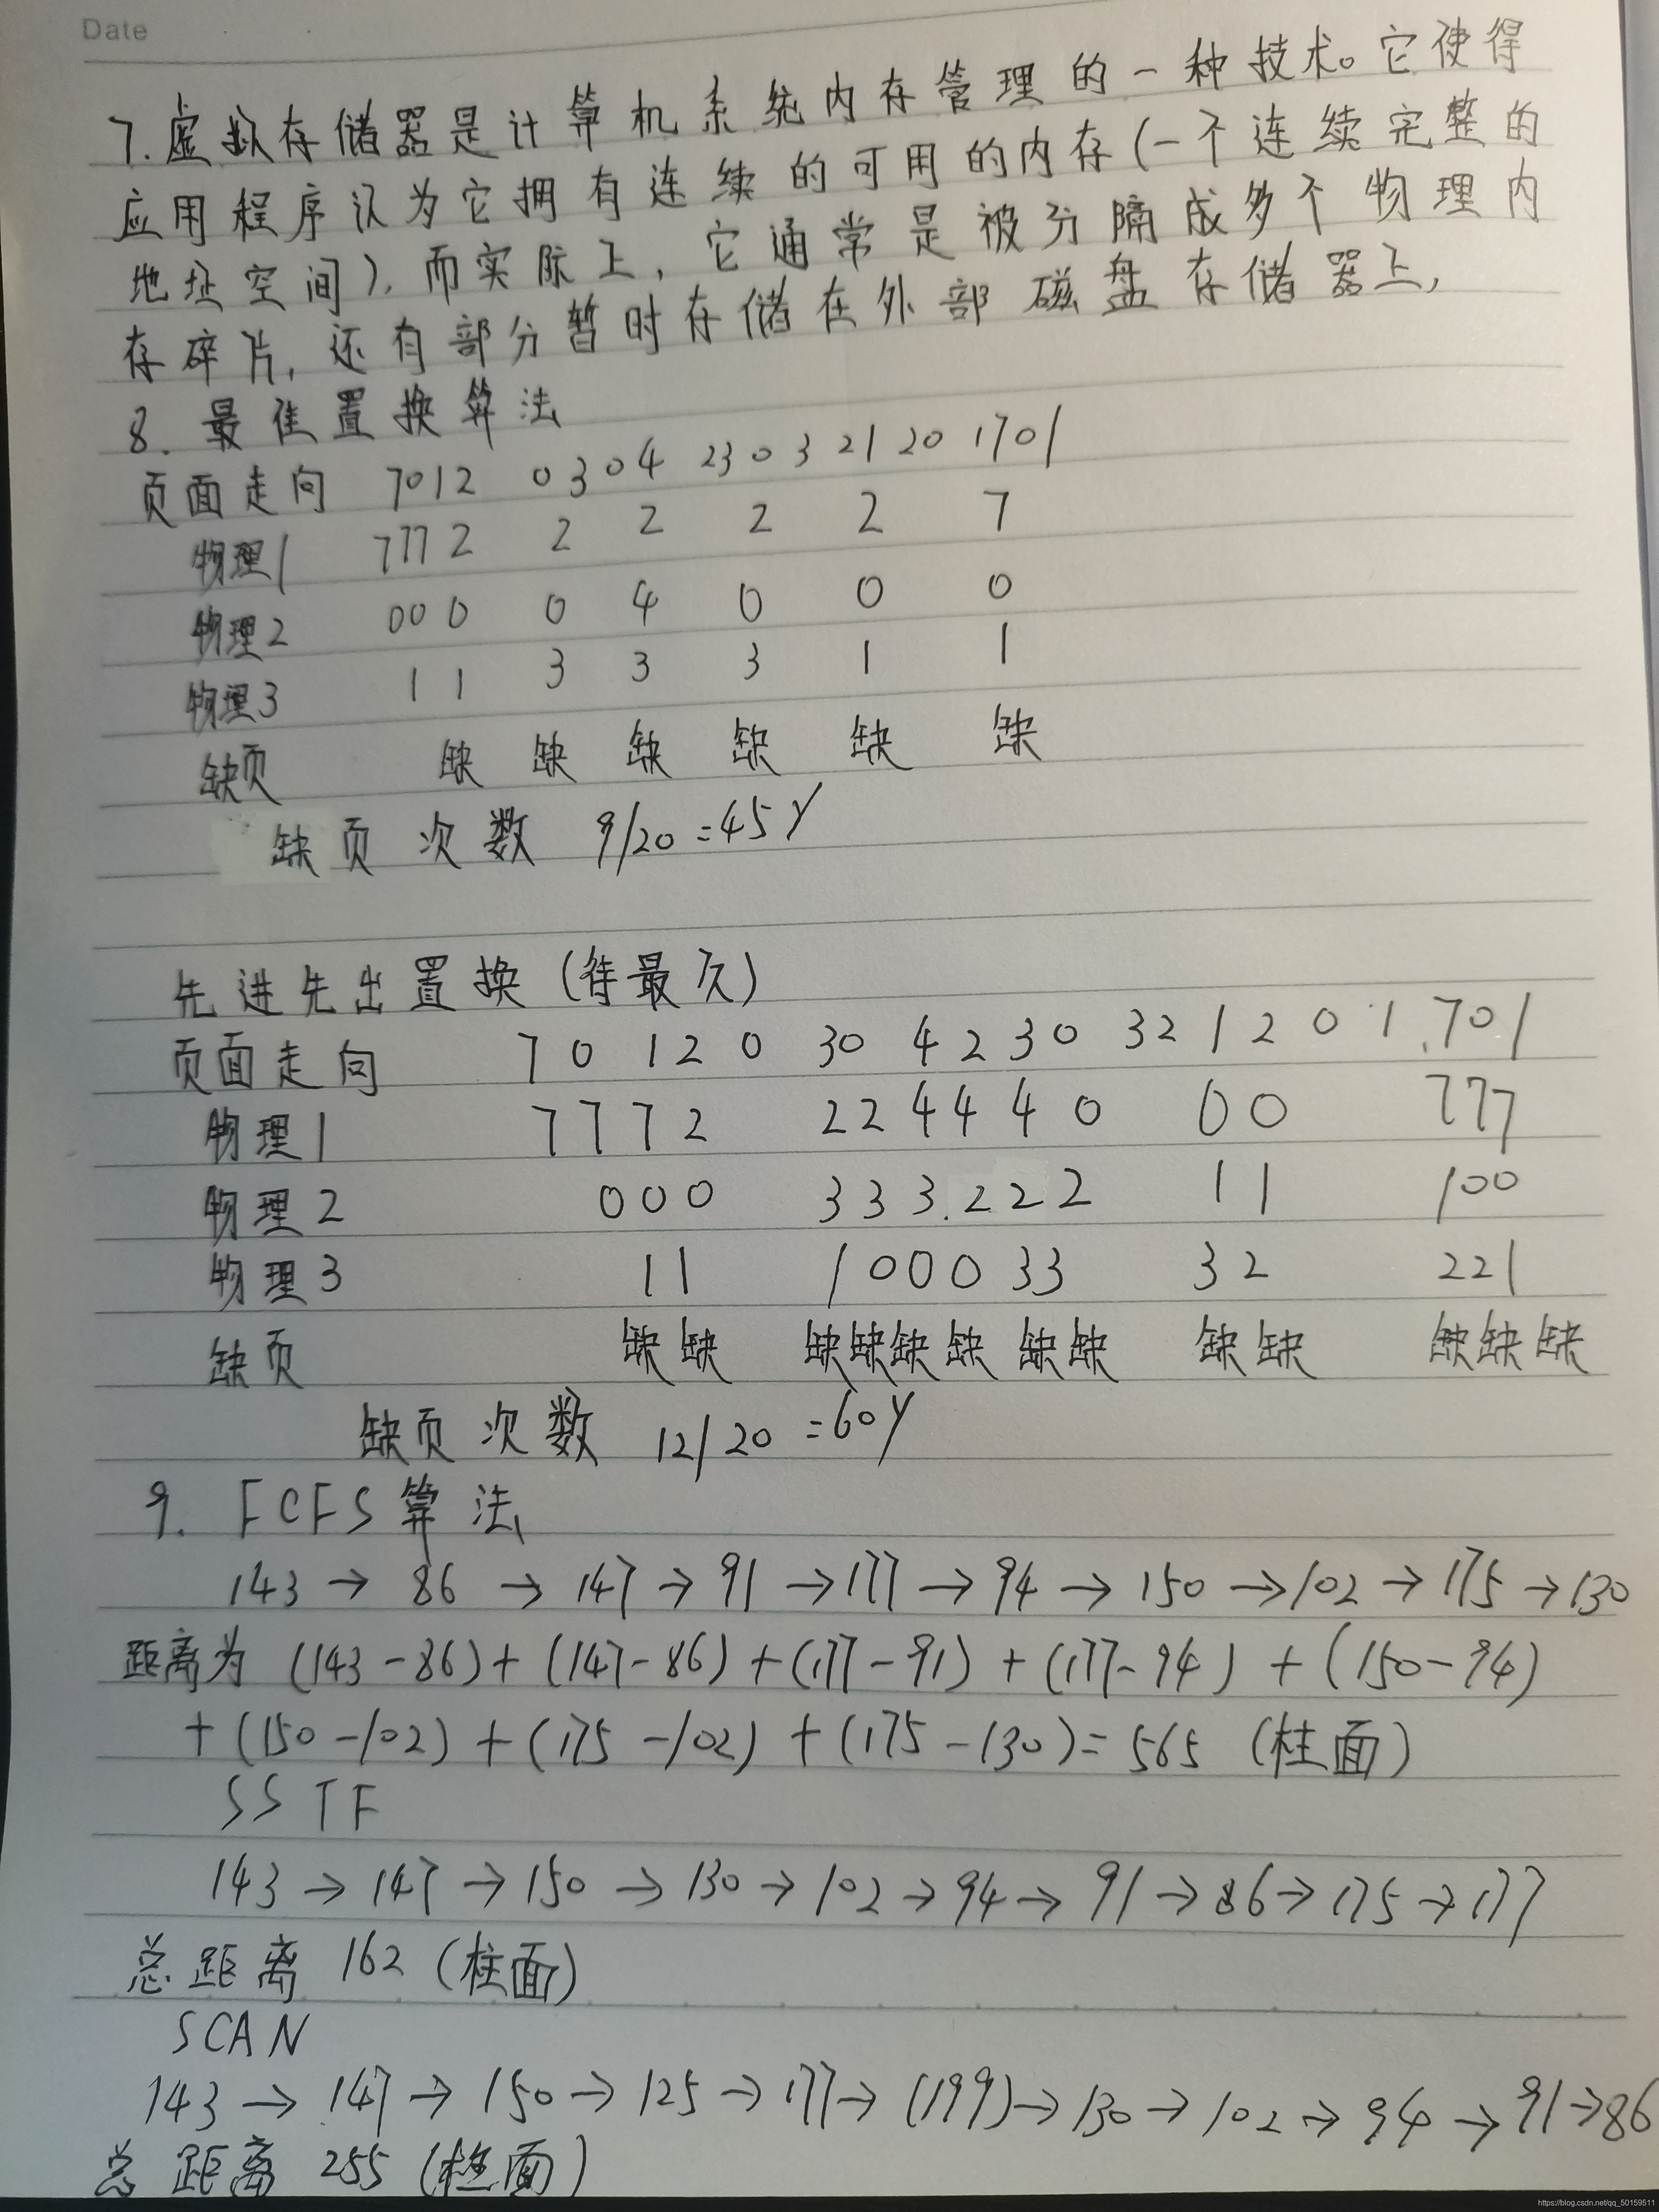 Date
7.虚拟存储器是计算机系统内存管理的一种技术。它使得
应用程序认为它拥有连续的可用的内存(一个连续完整的
地址空间),而实际上,它通常是被分隔成多个物理内
存碎片,还有部分暂时存储在外部磁盘存储器上,
8. 最佳置换算法
页面走向 7012 0304 2303 21 20 1701
物理1 777 2 2 2 2 2 7
物理2 00 0 0 4 0 0 0
物理3 1 1 3 3 3 1 1
缺页 缺 缺 缺 缺 缺 缺
缺页次数 9/20=45%
先进先出置换(待最久)
页面走向 7 0 1 2 0 30 4 2 3 0 32 1 2 0 1 701
物理1 7 7 7 2 2 2 4 4 4 0 0 0 777
物理2 0 0 0 3 3 3 2 2 2 1 1 100
物理3 1 1 1 0 0 0 3 3 3 2 221
缺页 缺 缺 缺缺缺缺 缺缺 缺缺 缺缺缺
缺页次数 12/20=60%
9. FCFS算法
143→86→147→91→177→94→150→102→175→130
距离为 (143-86)+(147-86)+(177-91)+(177-94)+(150-94)
+(150-102)+(175-102)+(175-130)=565 (柱面)
SSTF
143→147→150→130→102→94→91→86→175→177
总距离 162 (柱面)
SCAN
143→147→150→125→177→(199)→130→102→94→91→86
总距离 255 (柱面)
https://blog.csdn.net/qq_50159511